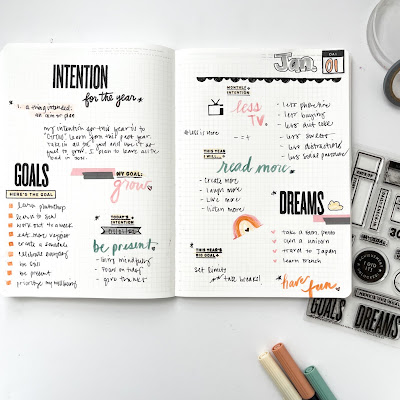 INTENTION
for the year
1. a thing intended;
an aim or plan
my intention for this year is to
learn from this past year.
take in all the good and use it as
fuel to grow. I plan to leave all the
bad in 2020.
GOALS
HERE'S THE GOAL
learn photoshop
learn to sew
work out 3x week
eat more veggies
create a schedule
celebrate everyday
be still
be present
prioritize my wellbeing
MY GOAL:
grow
TODAY'S
INTENTION
be present.
- living mindfully
- focus on today
- give thanks
Jan.
DAY
01
MONTHLY
INTENTION
less
TV.
#less is more
- less phone time
- less buying
- less diet coke
- less sweets
- less distractions
- less social
THIS YEAR
I WILL...
read more.
- create more
- laugh more
- love more
- listen more!
THIS YEAR'S
BIG GOAL
set limits
take breaks!
DREAMS
take a fam. photo
own a unicorn
travel to Japan
learn French
have fun
GOALS
DREAMS